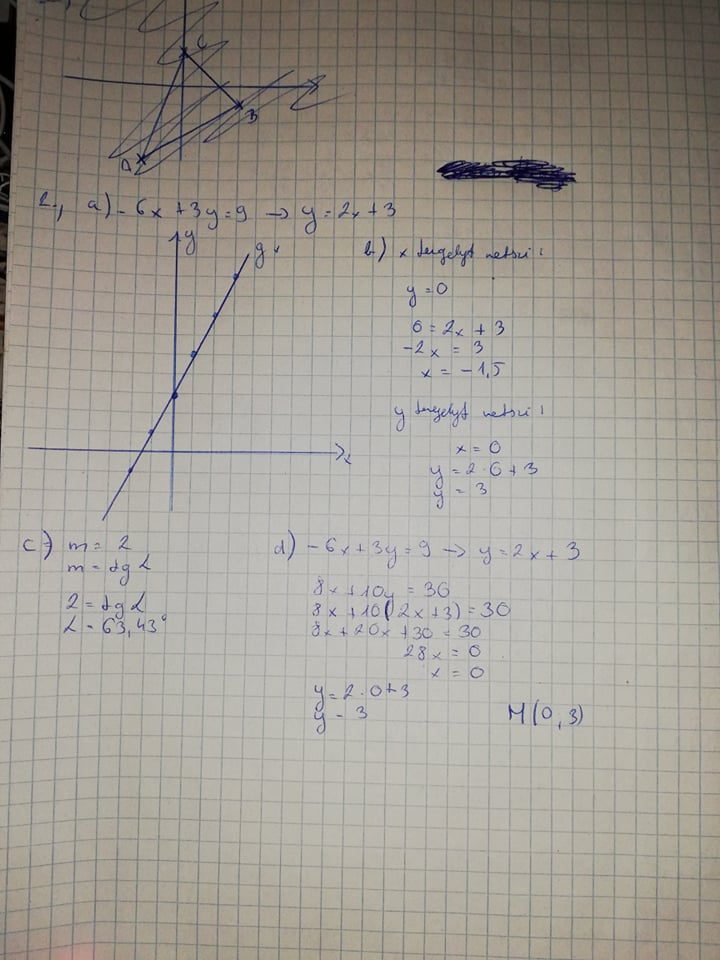 C
B
A
2., a) -6x + 3y = 9 → y = 2x + 3
y
g
x
b) x tengelyt metszi:
y = 0
0 = 2x + 3
-2x = 3
x = -1,5
y tengelyt metszi:
x = 0
y = 2·0 + 3
y = 3
c) m = 2
m = tg α
2 = tg α
α = 63,43°
d) -6x + 3y = 9 → y = 2x + 3
8x + 10y = 30
8x + 10(2x + 3) = 30
8x + 20x + 30 = 30
28x = 0
x = 0
y = 2·0 + 3
y = 3
M(0,3)